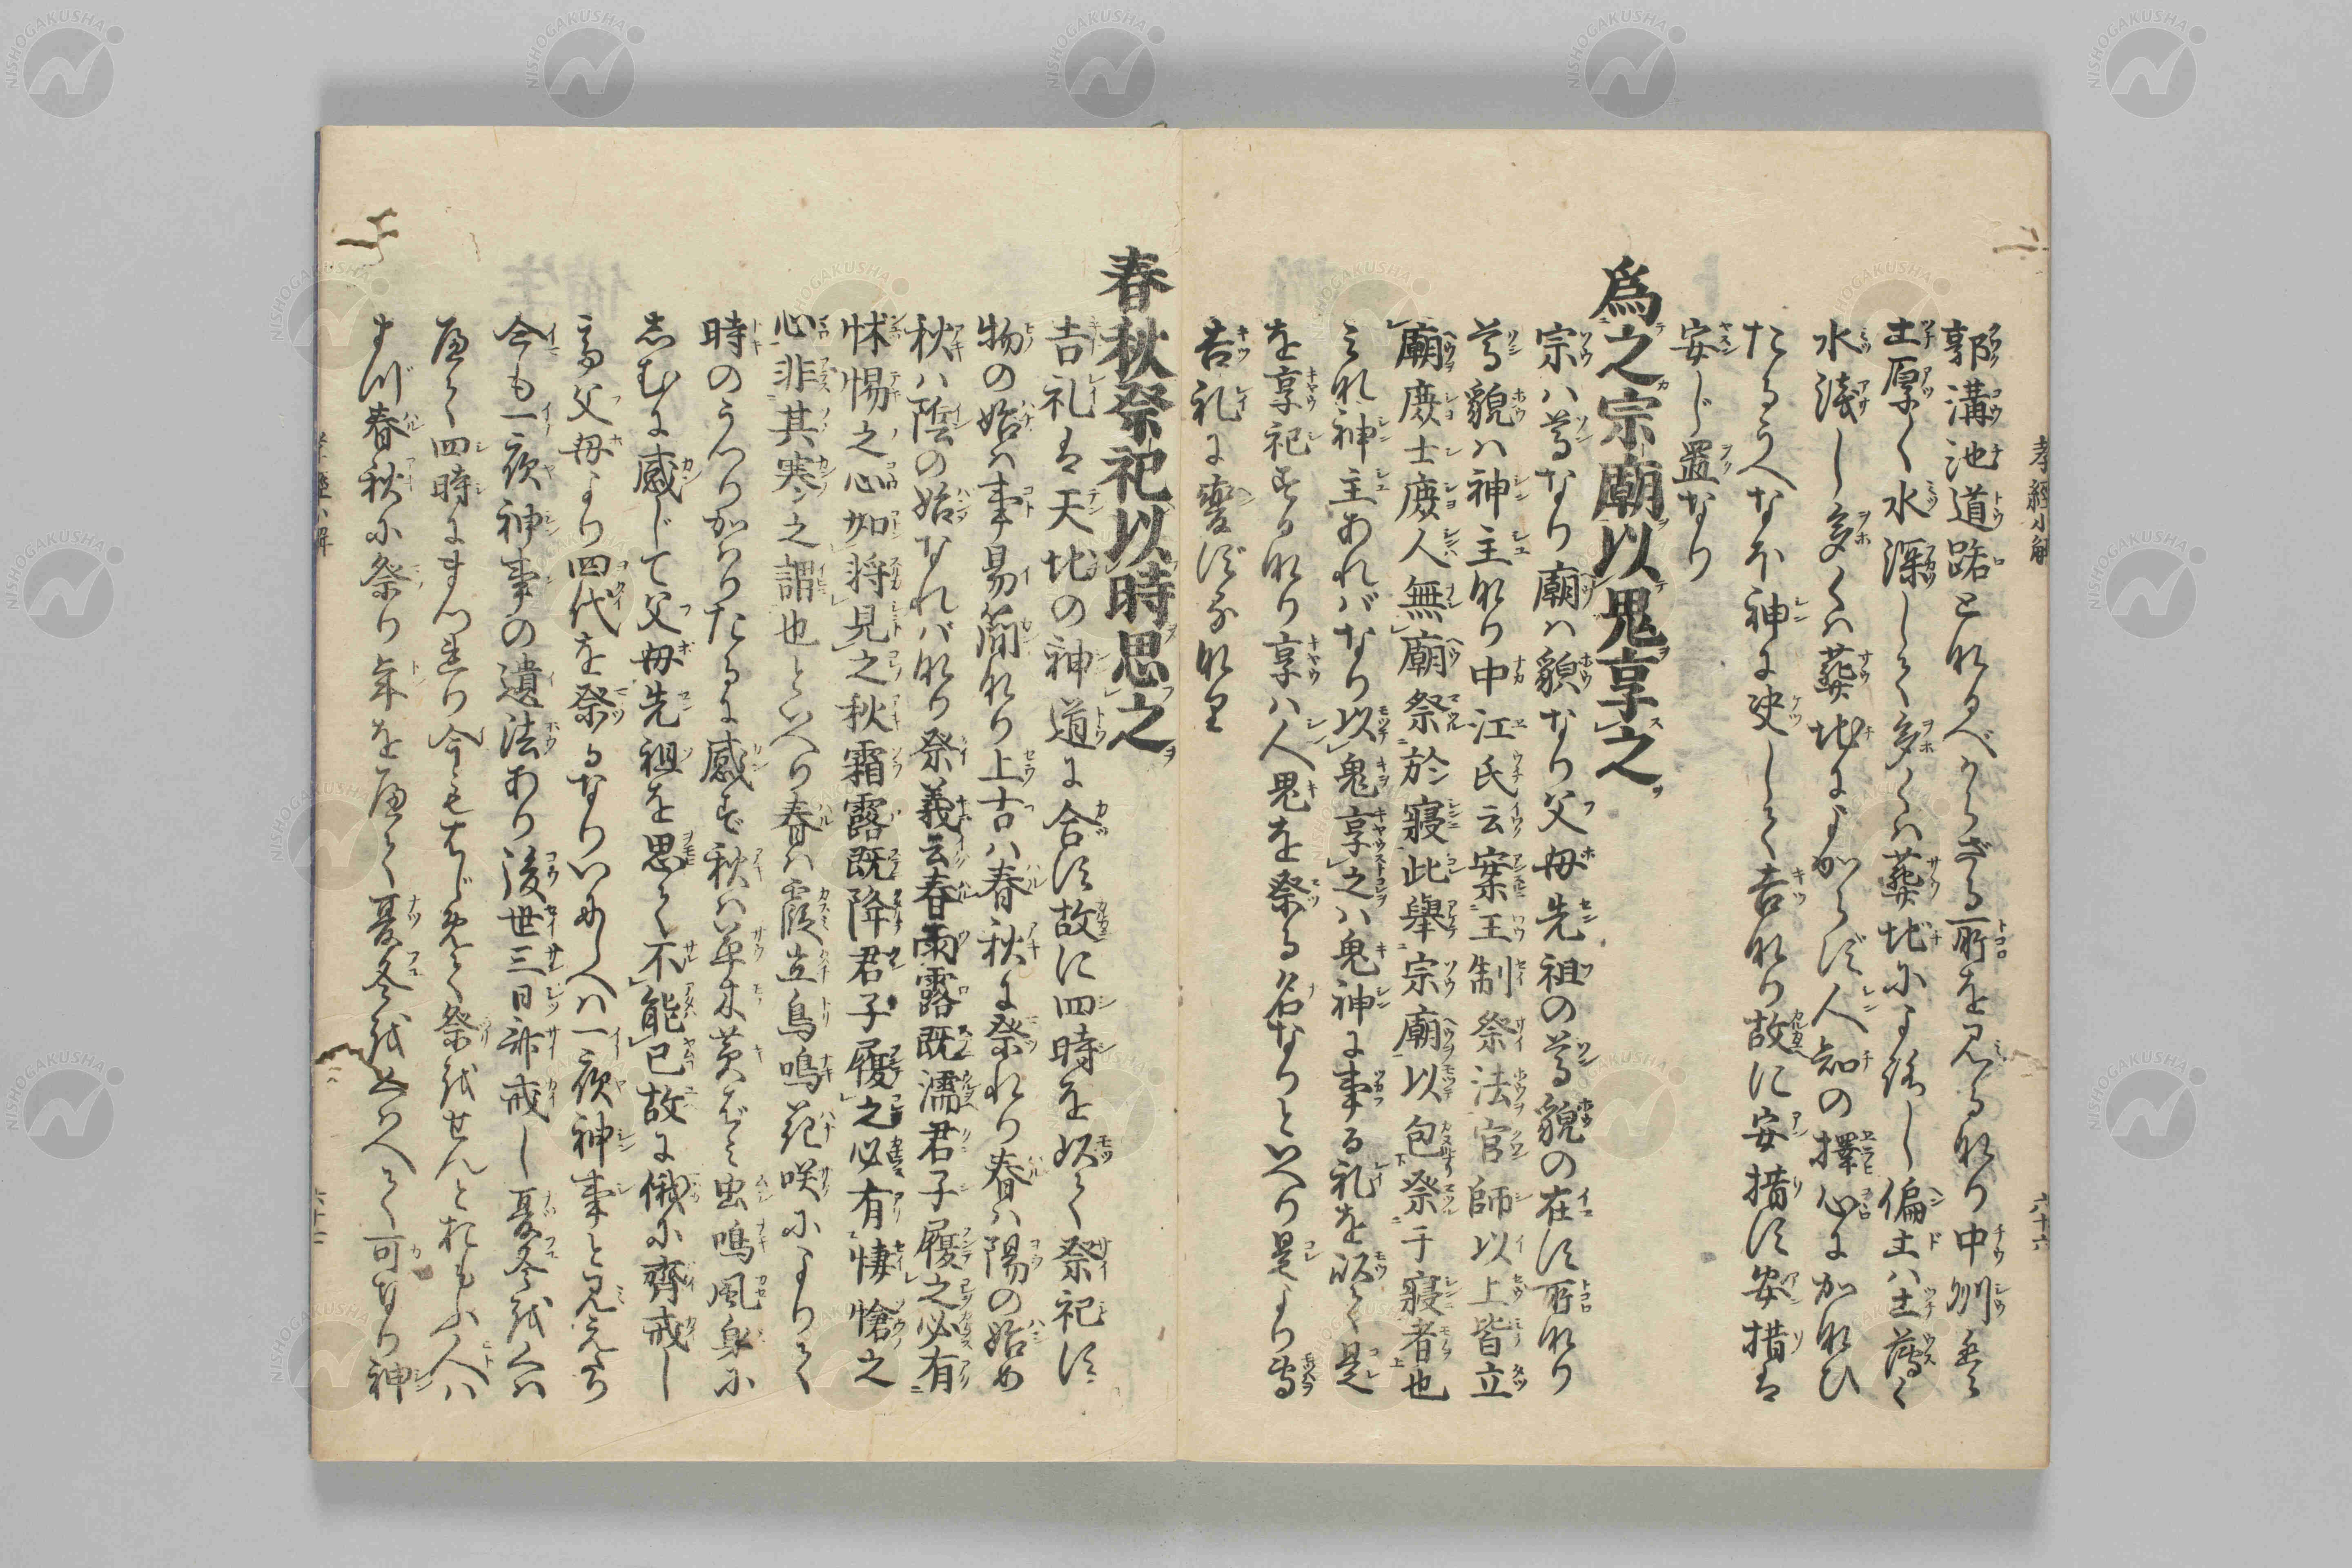 孝經小解
六十六
郭溝池道路となるべからざる所を見るなり中州᠎᠎は
土厚く水深しして多くハ葬地によろし偏土ハ土薄く
水淺し多くハ葬地によからず人知の擇心にかなひ
たるうへなほ神に決して吉なり故に安措す安措は
安じ置なり
爲之宗廟以鬼享之
宗ハ尊なり廟ハ貌なり父母先祖の尊貌の在す所なり
尊貌ハ神主なり中江氏云案王制祭法官師以上皆立
廟庶士庶人無廟祭於寢此舉宗廟以包祭于寢者也
これ神主あればなり以鬼享之ハ鬼神に事る礼を以て是
を享祀するなり享ハ人鬼を祭る名なりといへり是より
吉礼に變ずるなり
春秋祭祀以時思之
吉礼は天地の神道に合す故に四時を以て祭祀す
物の始ハ事易簡なり上古ハ春秋に祭れり春ハ陽の始め
秋ハ陰の始なればなり祭義云春雨露既濡君子履之必有
怵惕之心如將見之秋霜露既降君子履之必有悽愴之
心非其寒之謂也といへり春ハ霞立鳥鳴花咲によりて
時のうつりかハりたるに感ず秋ハ草木黄ばみ虫鳴風身に
しむに感じて父母先祖を思て不能已故に俄に齊戒し
て父母より四代を祭るなりいにしへハ一夜神事と見えたり
今も一夜神事の遺法あり後世三日齊戒し夏冬
四時にまつれり今もはじめて祭
まづ春秋に祭り年を歴て夏冬をくはへて可なり神